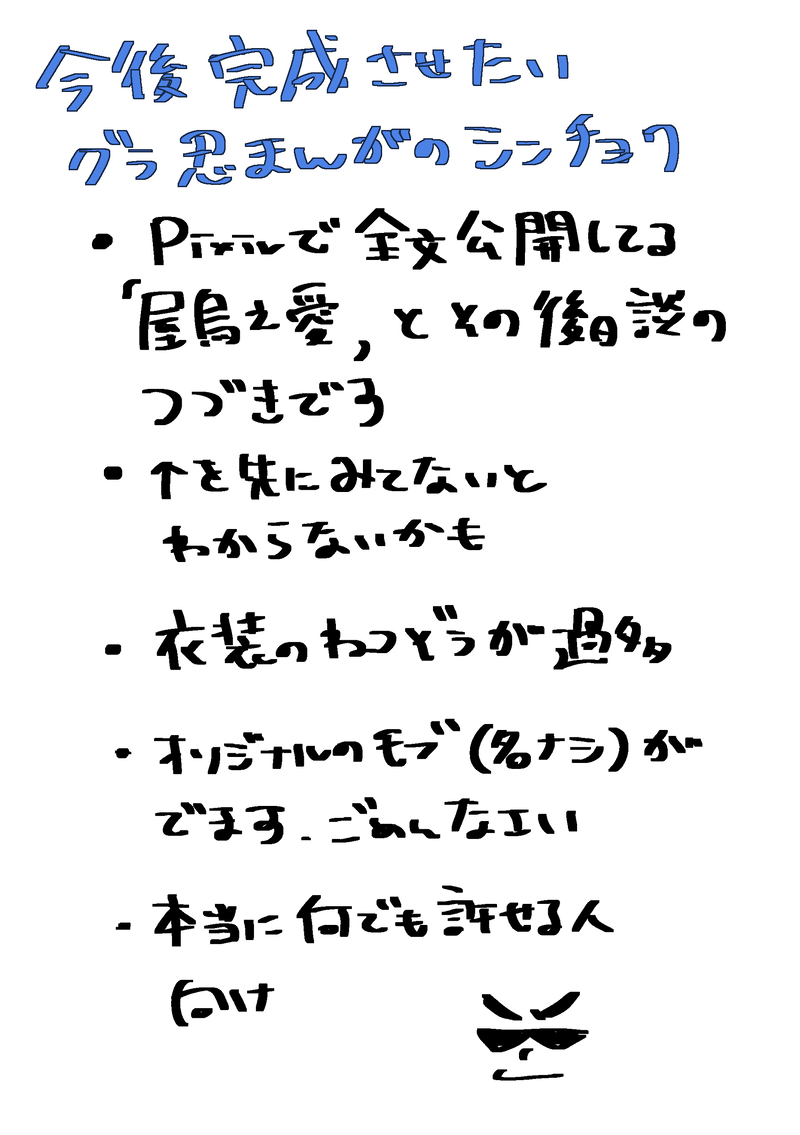 今後完成させたい
グラ忍まんがのシンチョク
・Pixivで全文公開してる
「屋烏之愛」とその後日談の
つづきでろ
・↑を先にみてないと
わからないかも
・衣装のねつどうが過多
・オリジナルのモブ(名ナシ)が
でます.ごめんなエい
・本当に何でも許せる人
向け